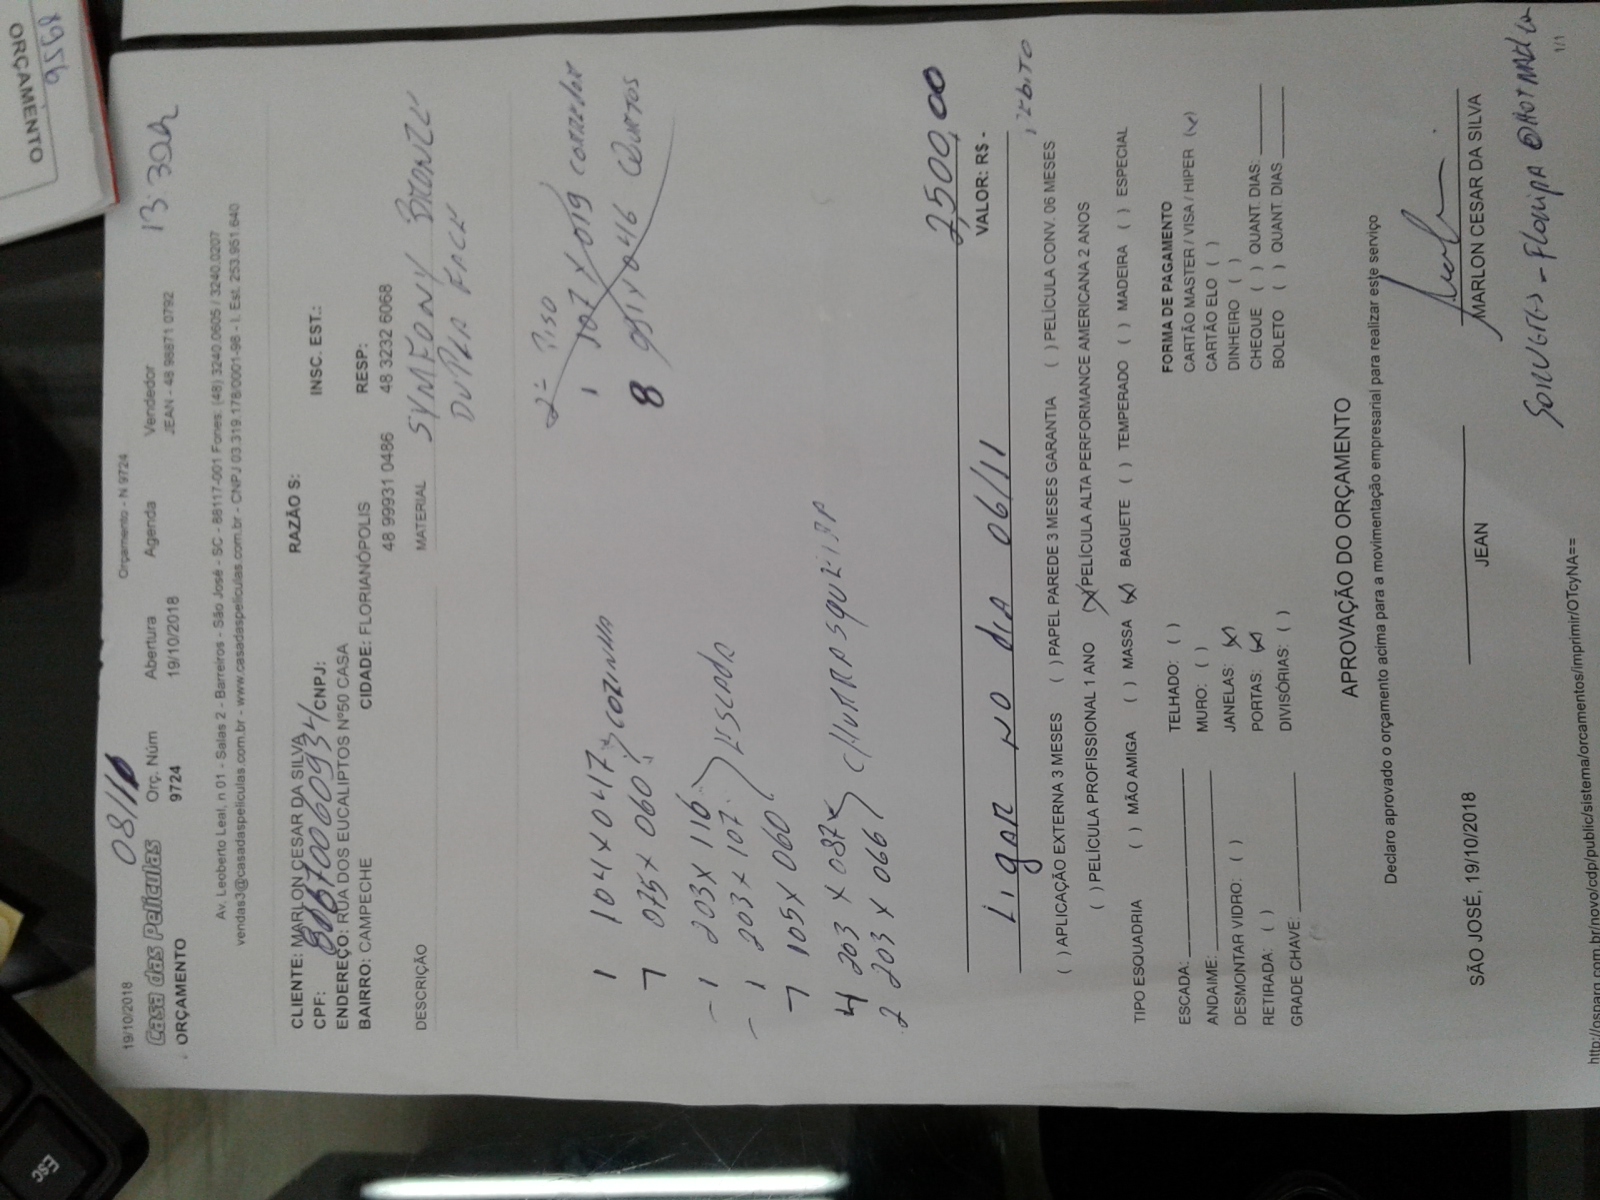 ORÇAMENTO
8956
19/10/2018
Orçamento - N 9724
08/11
13:30h
Casa das Películas
Orç. Núm Abertura Agenda Vendedor
ORÇAMENTO
9724 19/10/2018 JEAN - 48 98871 0792
Av. Leoberto Leal, n 01 - Salas 2 - Barreiros - São José - SC - 88117-001 Fones: (48) 3240.0605 / 3240.0207
vendas3@casadaspeliculas.com.br - www.casadaspeliculas.com.br - CNPJ 03.319.178/0001-96 - I. Est. 253.951.640
CLIENTE: MARLON CESAR DA SILVA RAZÃO S: INSC. EST.:
CPF: CNPJ:
ENDEREÇO: RUA DOS EUCALIPTOS Nº50 CASA
BAIRRO: CAMPECHE CIDADE: FLORIANÓPOLIS RESP:
48 99931 0486 48 3232 6068
DESCRIÇÃO MATERIAL SYMFONY BRONZE
DUPLA FACE
2º PISO
1 107 X 019 CORREDOR
8 X 046 QUARTOS
1 104 X 047
7 075 X 060 COZINHA
- 1 203 X 116
- 1 203 X 107 ESCADA
7 105 X 060
4 203 X 087
2 203 X 066 CHURRASQUEIRA
2500,00
VALOR: R$ -
LIGAR NO DIA 06/11
DÉBITO
( ) APLICAÇÃO EXTERNA 3 MESES ( ) PAPEL PAREDE 3 MESES GARANTIA ( ) PELÍCULA CONV. 06 MESES
( ) PELÍCULA PROFISSIONAL 1 ANO (X) PELÍCULA ALTA PERFORMANCE AMERICANA 2 ANOS
TIPO ESQUADRIA ( ) MÃO AMIGA ( ) MASSA (X) BAGUETE ( ) TEMPERADO ( ) MADEIRA ( ) ESPECIAL
FORMA DE PAGAMENTO
ESCADA: TELHADO: ( ) CARTÃO MASTER / VISA / HIPER (X)
ANDAIME: MURO: ( ) CARTÃO ELO ( )
DESMONTAR VIDRO: ( ) JANELAS: (X) DINHEIRO ( )
RETIRADA: ( ) PORTAS: (X) CHEQUE ( ) QUANT. DIAS:
GRADE CHAVE: DIVISÓRIAS: ( ) BOLETO ( ) QUANT. DIAS
APROVAÇÃO DO ORÇAMENTO
Declaro aprovado o orçamento acima para a movimentação empresarial para realizar este serviço
SÃO JOSÉ, 19/10/2018 JEAN MARLON CESAR DA SILVA
http://osparq.com.br/novo/cdp/public/sistema/orcamentos/imprimir/OTcyNA== 1/1